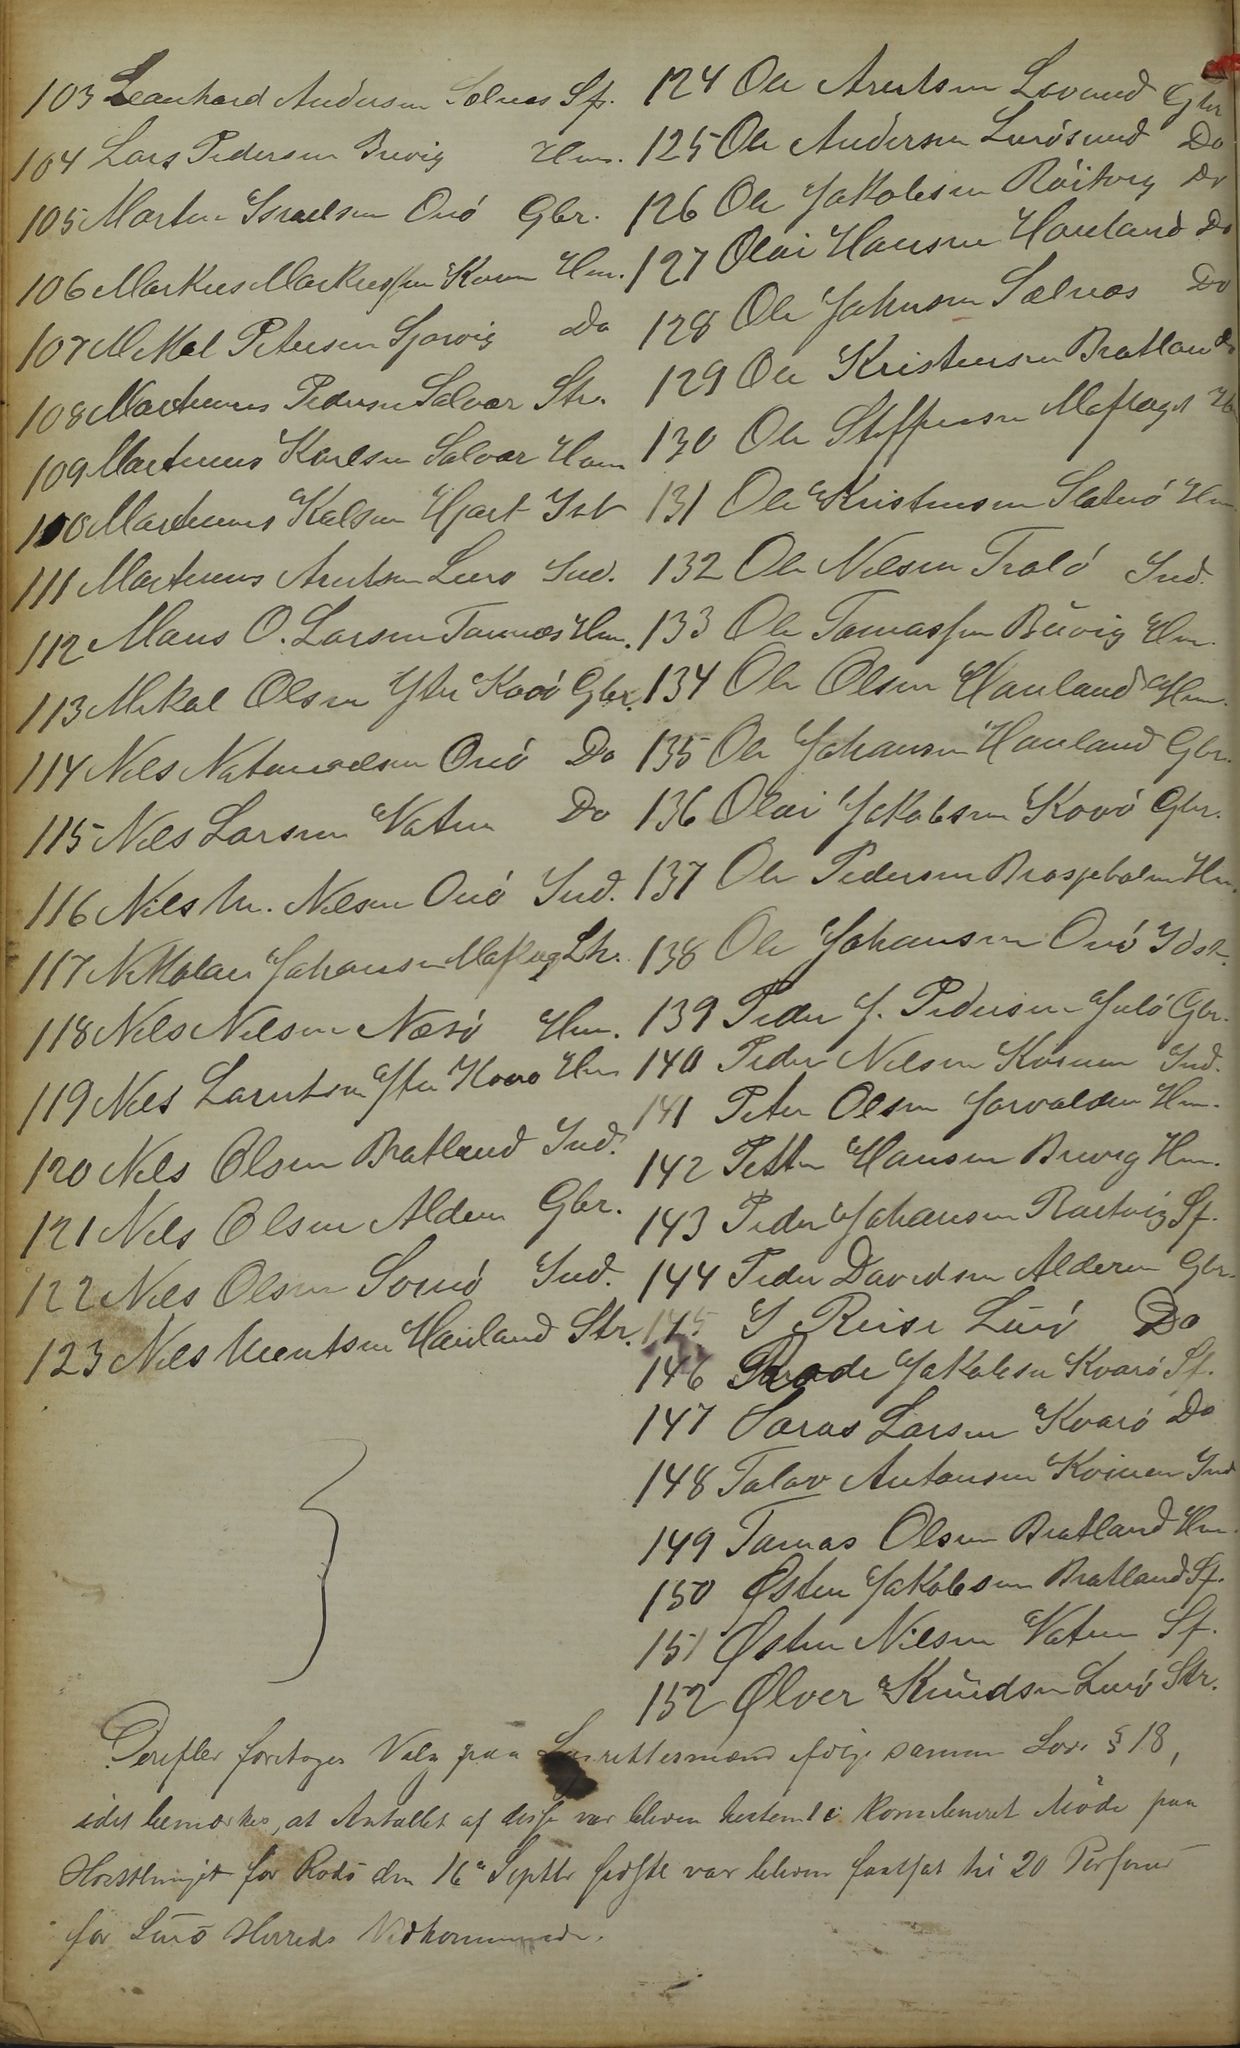 103 Leanhard Andersen Solvær Sf.
104 Lars Pedersen Buvig Hm.
105 Martin Israelsen Onö Gbr.
106 Markus Markussen Kvinen Hm.
107 Mikal Petersen Sjonvig Do
108 Martinus Pedersen Selvær Str.
109 Martinus Karlsen Selvær Hm
110 Martinus Kalsen Hjart
111 Martinus Arntsen Lurö Ind.
112 Mans O. Larsen Tonnes Hm.
113 Mikal Olsen Ytre Kvarö Gbr.
114 Nils Natanaelsen Onö Do
115 Nils Larsen Vatne Do
116 Nils M. Nilsen Onö Ind.
117 Nikolai Johansen Moflag Lh.
118 Nils Nilsen Næsö Hm.
119 Nils Larntsen Ytre Kvarö Hm
120 Nils Olsen Bratland Ind.
121 Nils Olsen Alderen Gbr.
122 Nils Olsen Sornö Ind.
123 Nils Mentsen Hauland Str.
124 Ole Arntsen Lovund Gbr
125 Ole Andersen Lurösund Do
126 Ole Jakobsen Röitvig Do
127 Olai Hansen Hauland Do
128 Ole Johnsen Solvær Do
129 Ole Kristensen Bratland Do
130 Ole Steffensen Moflaget Hm
131 Ole Kristensen Slotnö Hm
132 Ole Nilsen Tralö Ind.
133 Ole Tomassen Buvig Hm.
134 Ole Olsen Hauland Hm.
135 Ole Johansen Hauland Gbr.
136 Olai Jakobsen Kvarö Gbr.
137 Ole Pedersen Braseholmen Hm.
138 Ole Johansen Onö
139 Peder J. Pedersen Julö Gbr.
140 Peder Nilsen Kvinen Ind.
141 Peter Olsen Gorvalden Hm.
142 Petter Hansen Buvig Hm.
143 Peder Johansen Rautvig Sf.
144 Peder Davidsen Alderen Gbr.
145 Lurö Do
146 Jakobsen Kvarö Sf.
147 Larsen Kvarö Do
148 Antonsen Kvinen Ind
149 Tomas Olsen Bratland Hm.
150 Østen Jakobsen Bratland Sf.
151 Østen Nilsen Vatne Sf.
152 Ølver Knudsen Lurö Str.
Derefter foretoges Valg paa Lagrettesmænd ifölge samme Lovs § 18,
idet bemærkes, at Antallet af disse var bleven bestemt i kombineret Möde paa
Herredstinget for Rödö den 16de Septbr sidste var bleven fastsat til 20 Personer
for Lurö Herreds Vedkommende.